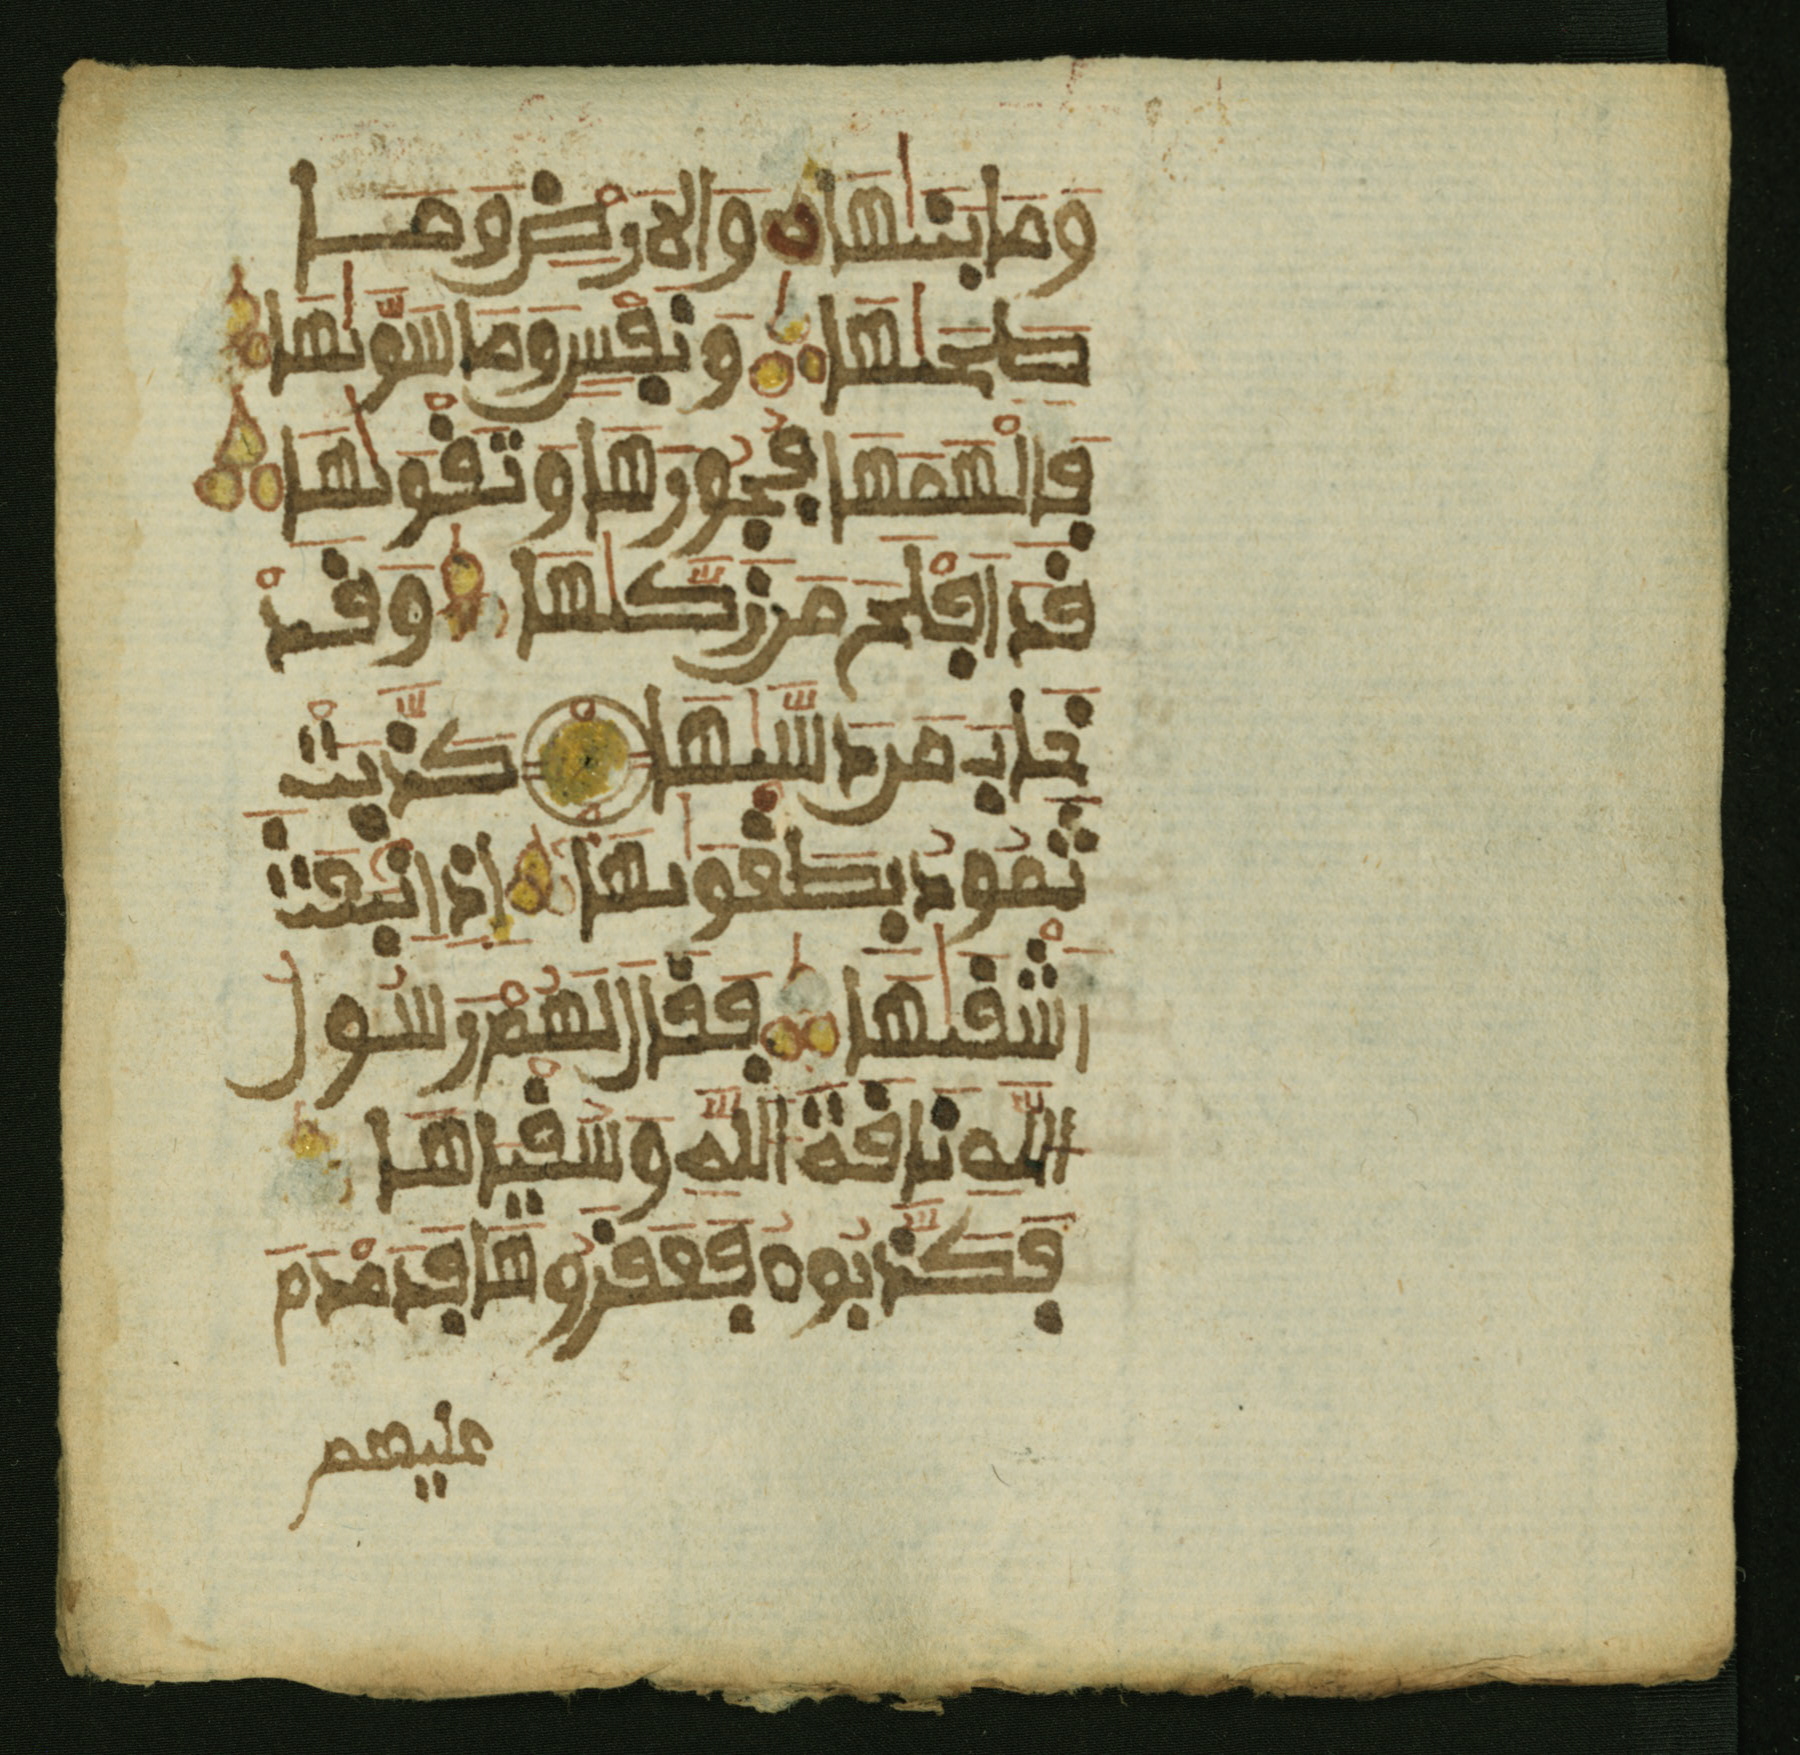 وَمَا بَنَىٰهَا وَالَارْضِ وَمَا
طَحَىٰهَا وَنَفْسٍ وَمَا سَوَّىٰهَا
فَأَلْهَمَهَا فُجُورَهَا وَتَقْوَىٰهَا
قَدَ اَفْلَحَ مَن زَكَّىٰهَا وَقَدْ
خَابَ مَن دَسَّىٰهَا كَذَّبَتْ
ثَمُودُ بِطَغْوَىٰهَا إِذِ انۢبَعَثَ
أَشْقَىٰهَا فَقَالَ لَهُمْ رَسُولُ
اللَّهِ نَاقَةَ اللَّهِ وَسُقْيَاهَا
فَكَذَّبُوهُ فَعَقَرُوهَا فَدَمْدَمَ
عليهم